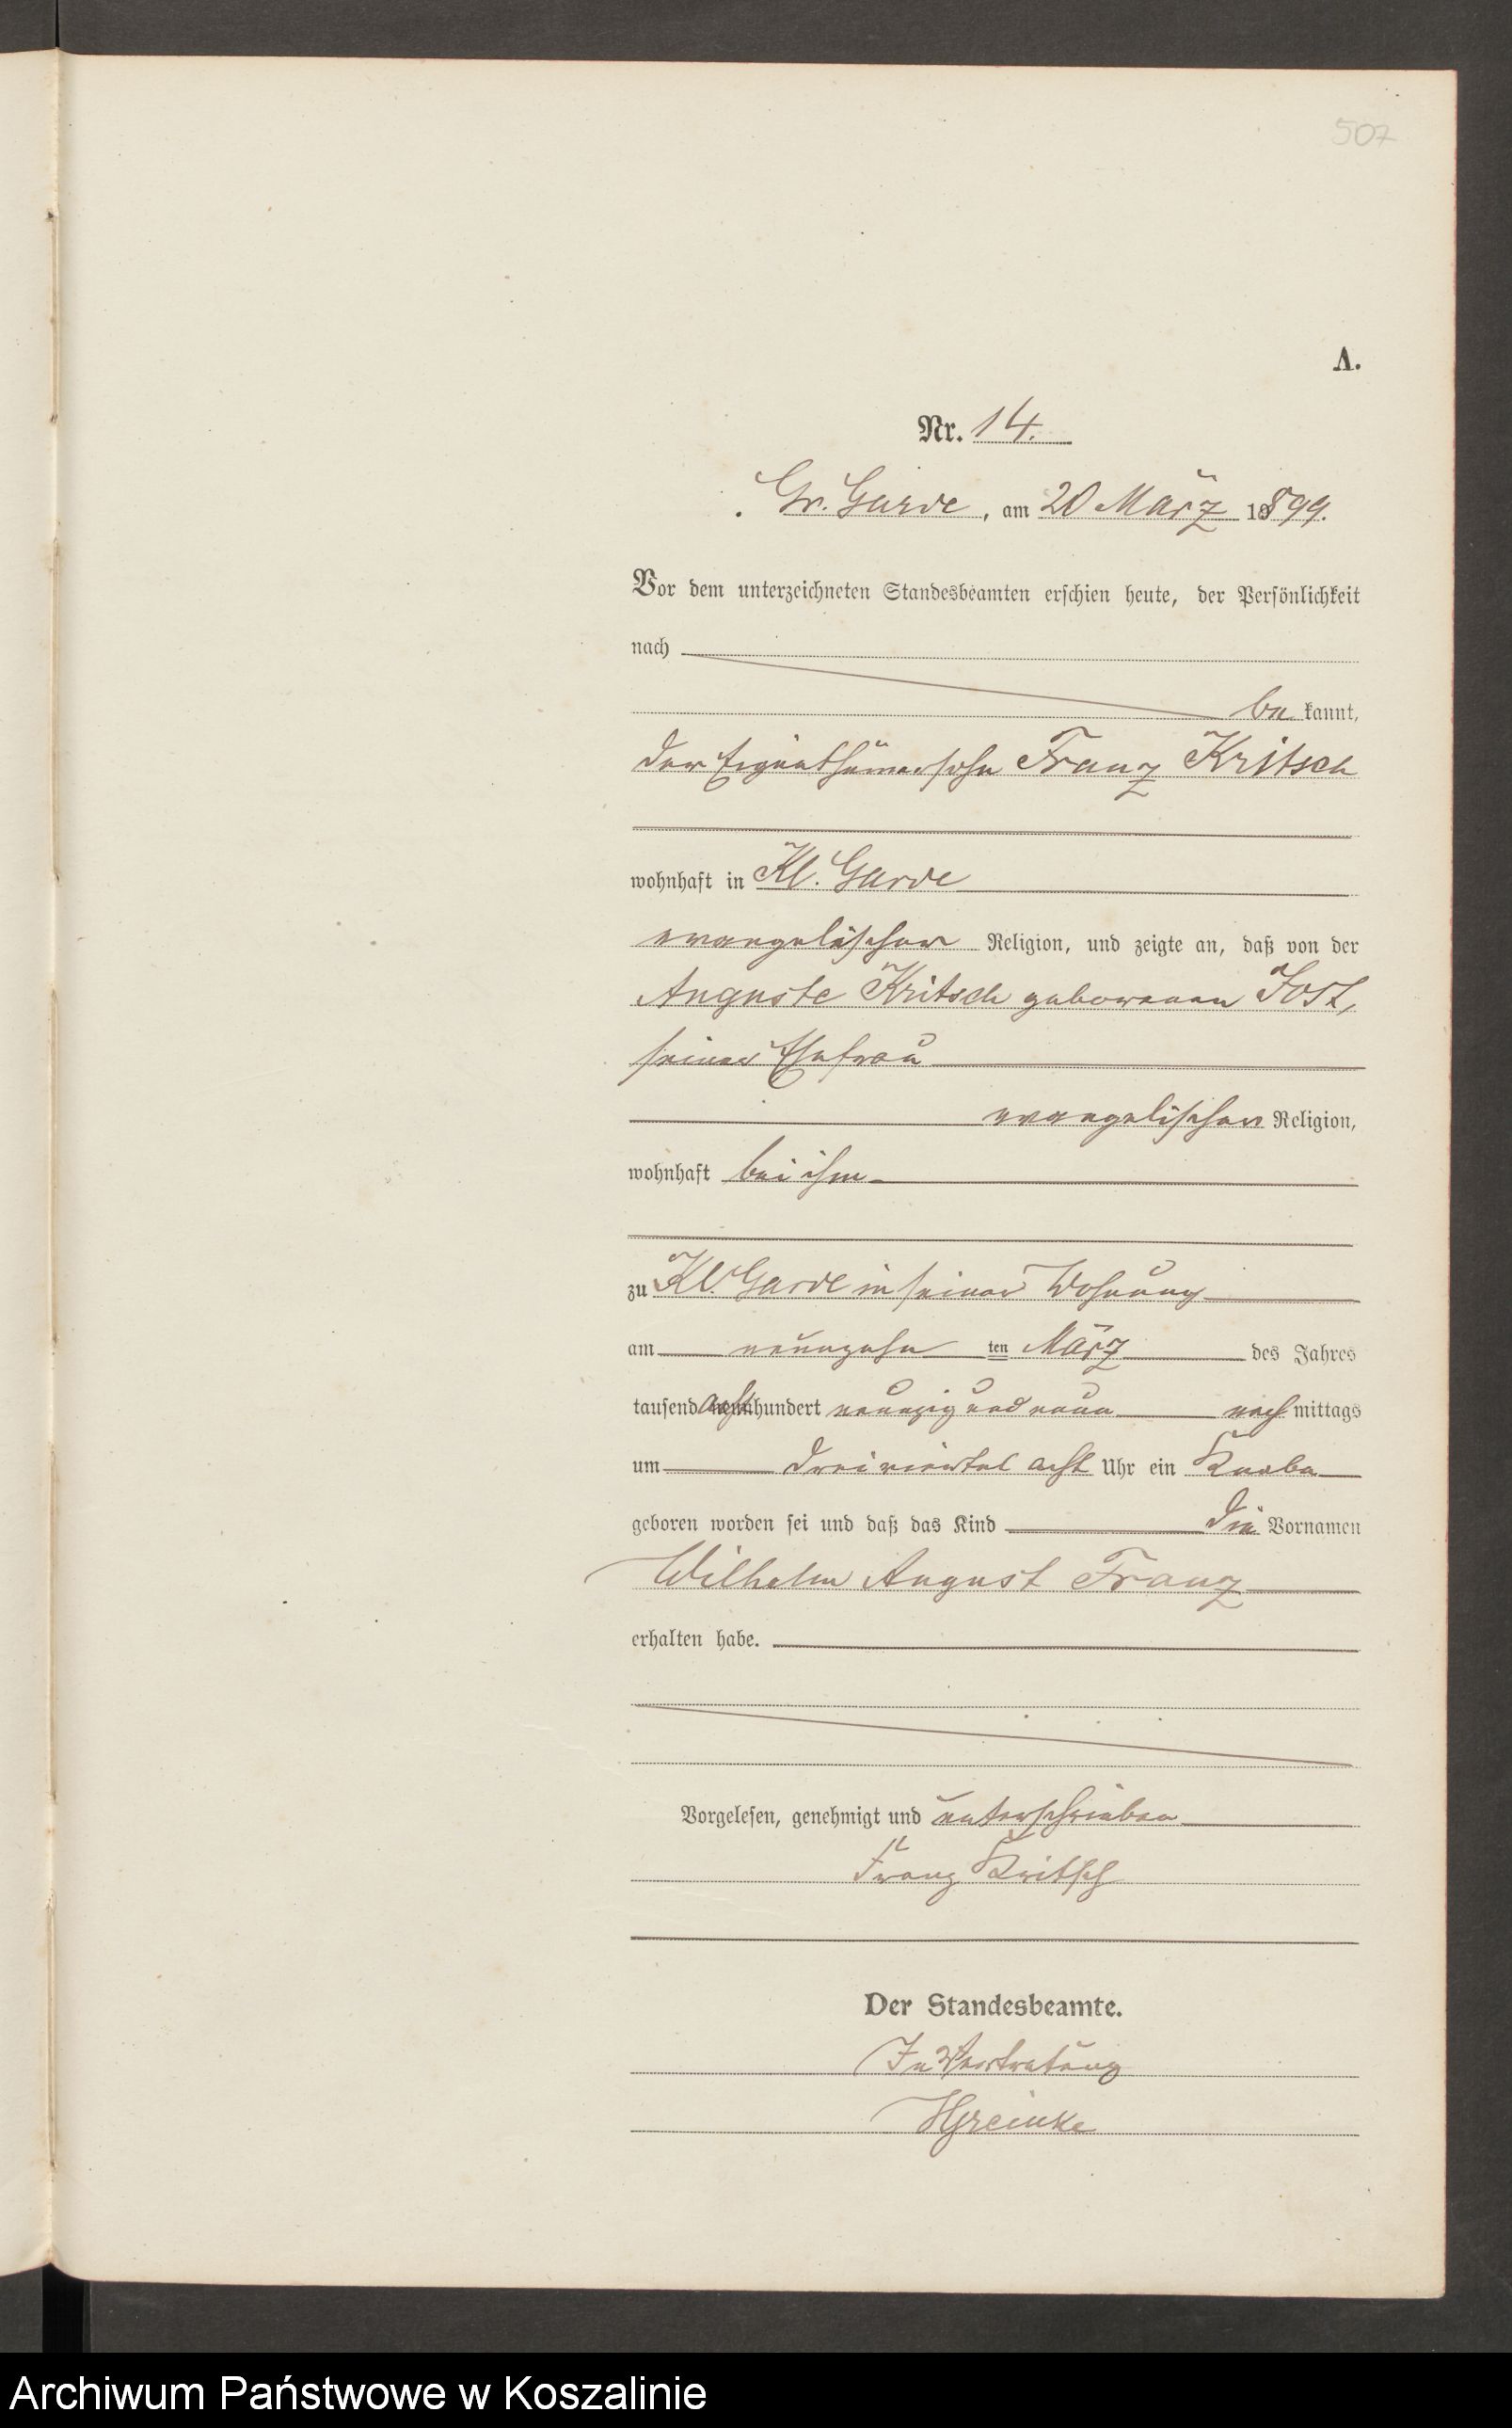 507
A.
Nr. 14.
Gr. Garde, am 20 März 1899.
Vor dem unterzeichneten Standesbeamten erschien heute, der Persönlichkeit
nach
be kannt,
der Eigenthümersohn Franz Kritsch
wohnhaft in Kl. Garde
evangelischer Religion, und zeigte an, daß von der
Auguste Kritsch geborenen Jost,
seiner Ehefrau
evangelischer Religion,
wohnhaft bei ihm
zu Kl. Garde in seiner Wohnung
am neunzehn ten März des Jahres
tausend acht hundert neunzig und neun nach mittags
um dreiviertel acht Uhr ein Knabe
geboren worden sei und daß das Kind die Vornamen
Wilhelm August Franz
erhalten habe.
Vorgelesen, genehmigt und unterschrieben
Franz Kritsch
Der Standesbeamte.
In Vertretung
Archiwum Państwowe w Koszalinie